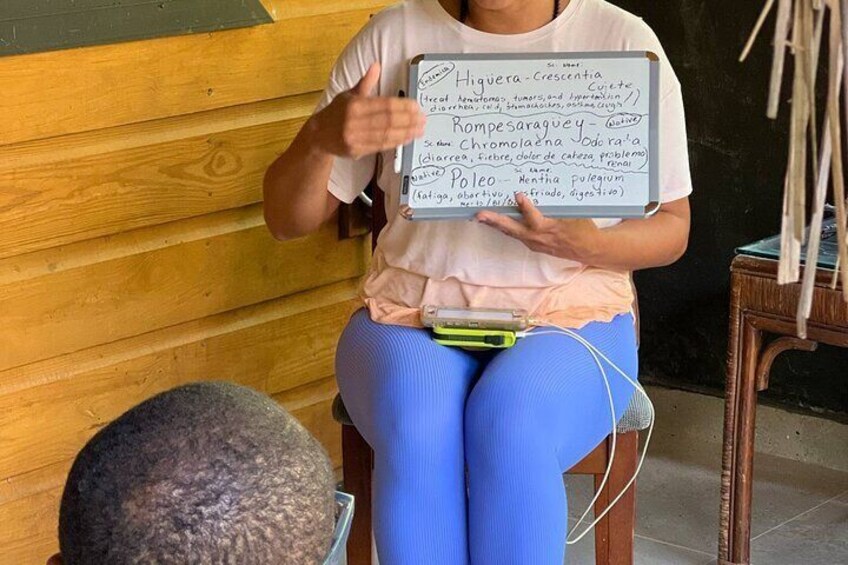 Endemica Sc. Name.
Higüera - Crescentia Cujete
(treat hematomas, tumors, and hypertension
diarrhea, cold, stomachaches, cough)
Rompesaragüey - Native
Sc. Name: Chromolaena Odorata
(diarrea, fiebre, dolor de cabeza, problema
renal
Native Sc. Name.
Poleo - Mentha pulegium
(fatiga, abortivo, resfriado, digestivo)